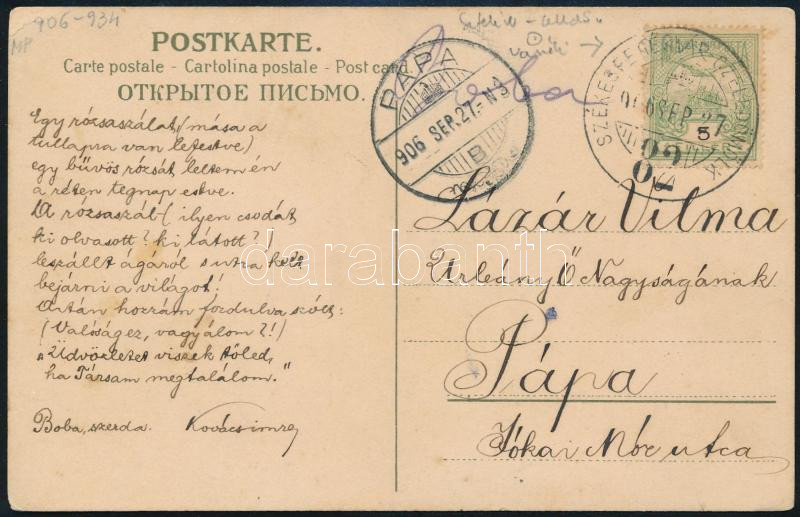 906-934
MP
POSTKARTE.
Carte postale - Cartolina postale - Post card.
ОТКРЫТОЕ ПИСЬМО.
Egy rózsaszálat, (mása a
tullapra van lefestve)
egy bűvös rózsát leltem én
a réten tegnap estve.
A rózsaszál - (ilyen csodát
ki olvasott? ki látott?)
leszállt ágáról s utra kelt
bejárni a világot!
Aztán hozzám fordulva szólt:
(Valóság ez, vagy álom?!)
"Üdvözletet viszek tőled,
ha Társam megtalálom."
Boba, szerda. Kovács imre
PÁPA
906 SEP. 27.- N9
B
SZÉKESFEHÉRVÁR-CZELLDÖMÖLK
906 SEP 27
20
5
Lázár Vilma
Urleány Ő Nagyságának
Pápa
Jókai Mór utca
darabanth.com